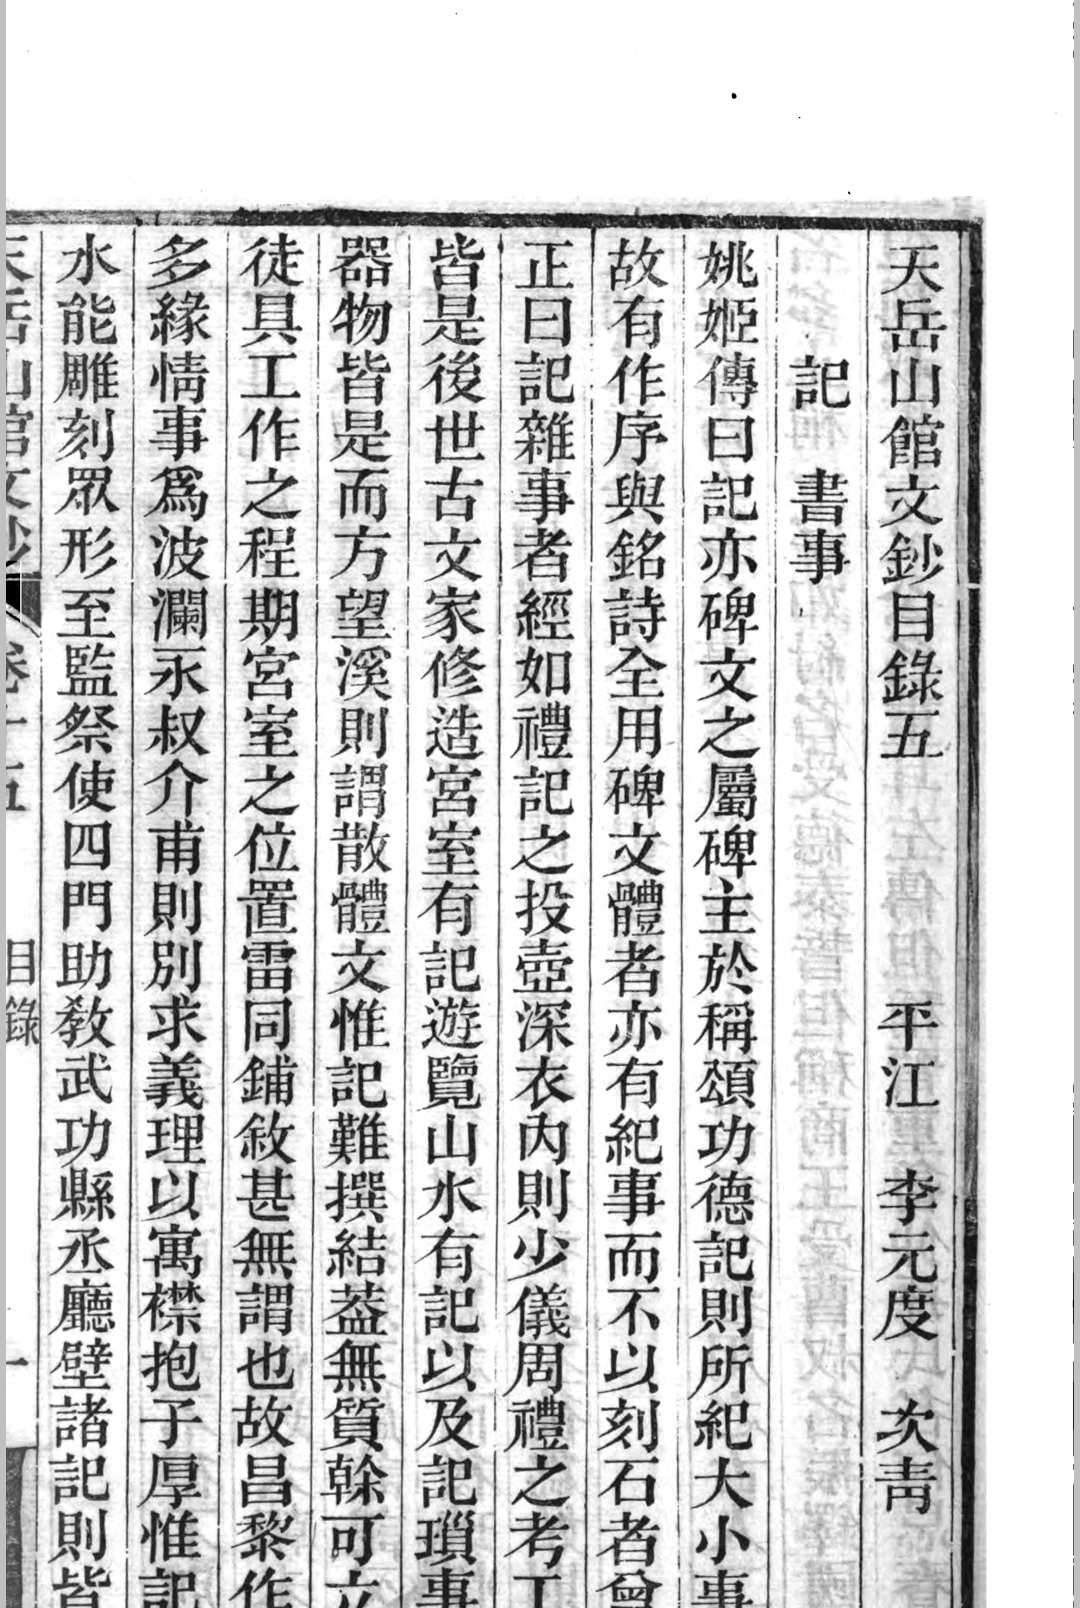 天岳山館文鈔目錄五　平江　李元度　次靑
記　書事
姚姬傳曰記亦碑文之屬碑主於稱頌功德記則所紀大小事
故有作序與銘詩全用碑文體者亦有紀事而不以刻石者曾
正曰記雜事者經如禮記之投壺深衣內則少儀周禮之考工
皆是後世古文家修造宮室有記遊覽山水有記以及記瑣事
器物皆是而方望溪則謂散體文惟記難撰結葢無質榦可立
徒具工作之程期宮室之位置雷同鋪敘甚無謂也故昌黎作
多緣情事爲波瀾永叔介甫則別求義理以寓襟抱子厚惟記
水能雕刻眾形至監祭使四門助敎武功縣丞廳壁諸記則皆
天岳山館文鈔　卷十五　目錄　一